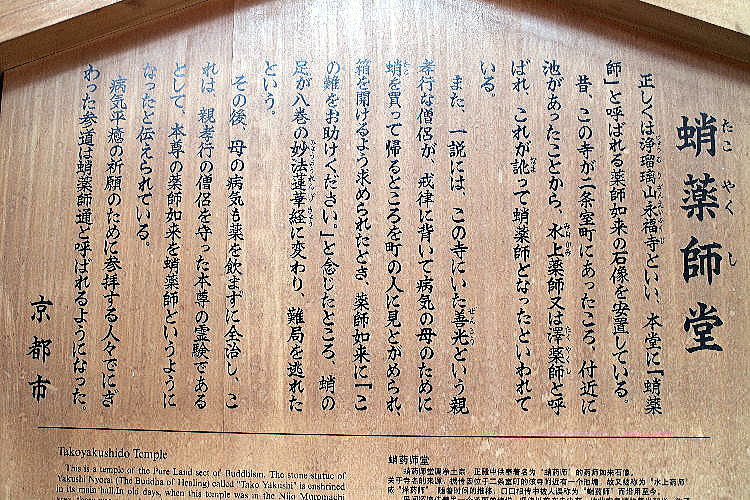 蛸薬師堂
たこやくし
正しくは浄瑠璃山永福寺といい、本堂に「蛸薬
師」と呼ばれる薬師如来の石像を安置している。
昔、この寺が二条室町にあったころ、付近に
池があったことから、水上薬師又は澤薬師と呼
ばれ、これが訛って蛸薬師となったといわれて
いる。
また、一説には、この寺にいた善光という親
孝行な僧侶が、戒律に背いて病気の母のために
蛸を買って帰るところを町の人に見とがめられ、
箱を開けるよう求められたとき、薬師如来に「こ
の難をお助けください。」と念じたところ、蛸の
足が八巻の妙法蓮華経に変わり、難局を逃れた
という。
その後、母の病気も薬を飲まずに全治し、こ
れは、親孝行の僧侶を守った本尊の霊験である
として、本尊の薬師如来を蛸薬師というように
なったと伝えられている。
病気平癒の祈願のために参拝する人々でにぎ
わった参道は蛸薬師通と呼ばれるようになった。
京都市
Takoyakushido Temple
This is a temple of the Pure Land sect of Buddhism. The stone statue of
Yakushi Nyorai (The Buddha of Healing) called "Tako Yakushi" is enshrined
in its main hall. In old days, when this temple was in the Nijo Muromachi
蛸药师堂
蛸药师堂属净土宗，正殿中供奉着名为“蛸药师”的药师如来石像。